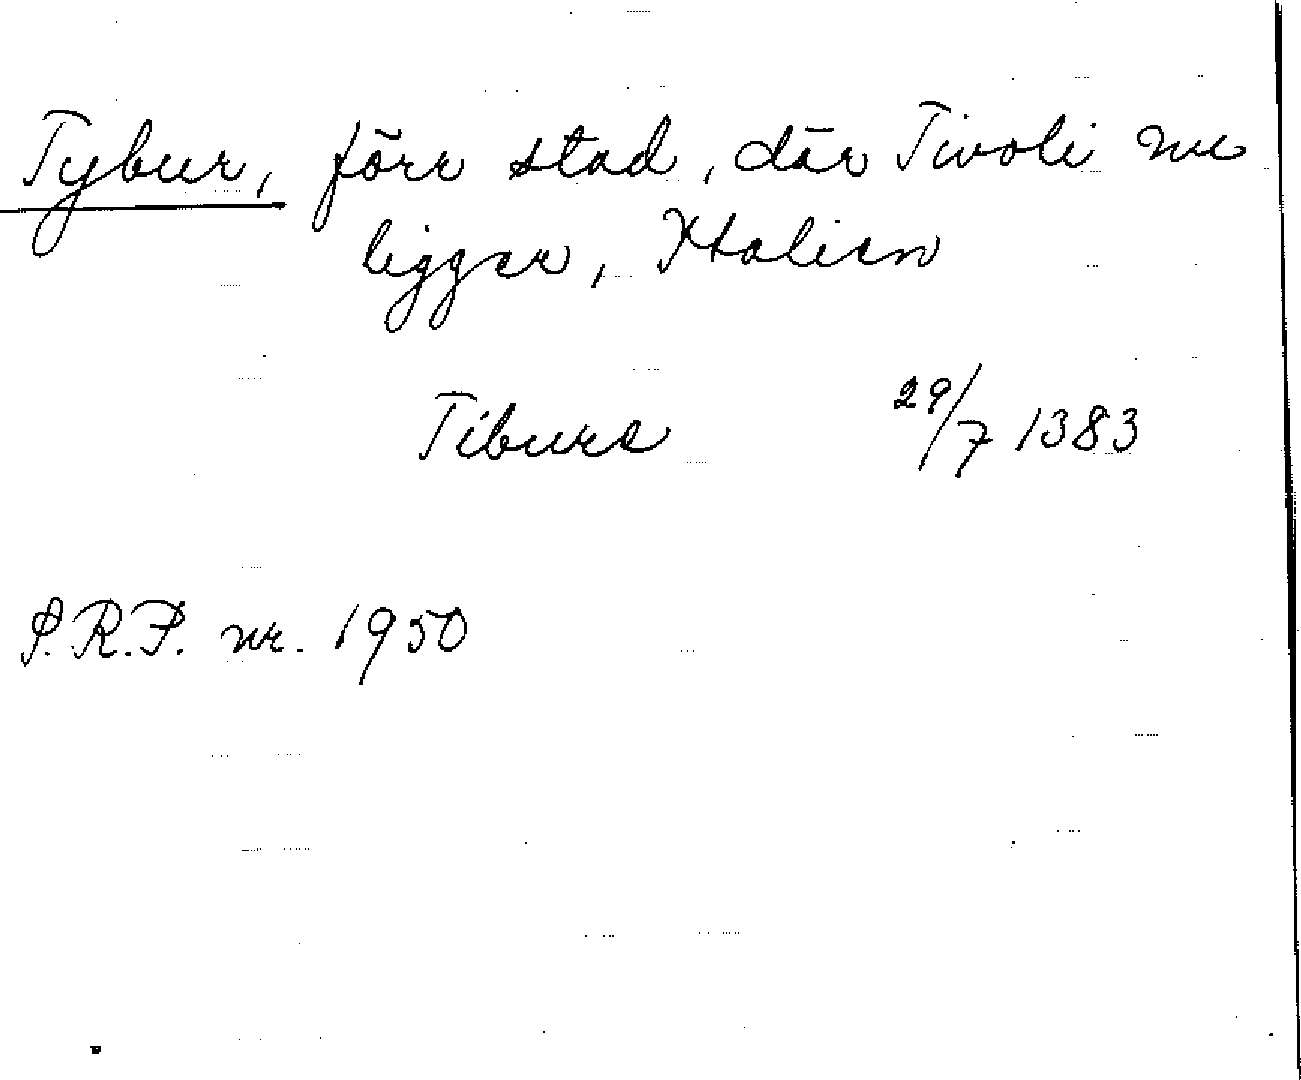 Tybur, förr stad, där Tivoli nu
ligger, Italien
Tiburs 29/7 1383
S.R.P. nr. 1950